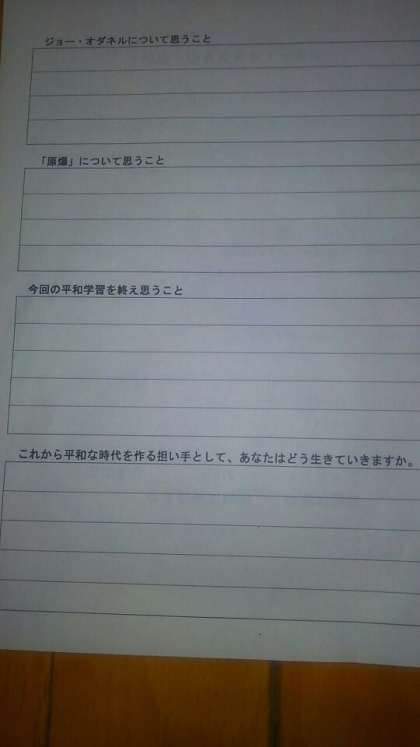 ジョー・オダネルについて思うこと
「原爆」について思うこと
今回の平和学習を終え思うこと
これから平和な時代を作る担い手として、あなたはどう生きていきますか。